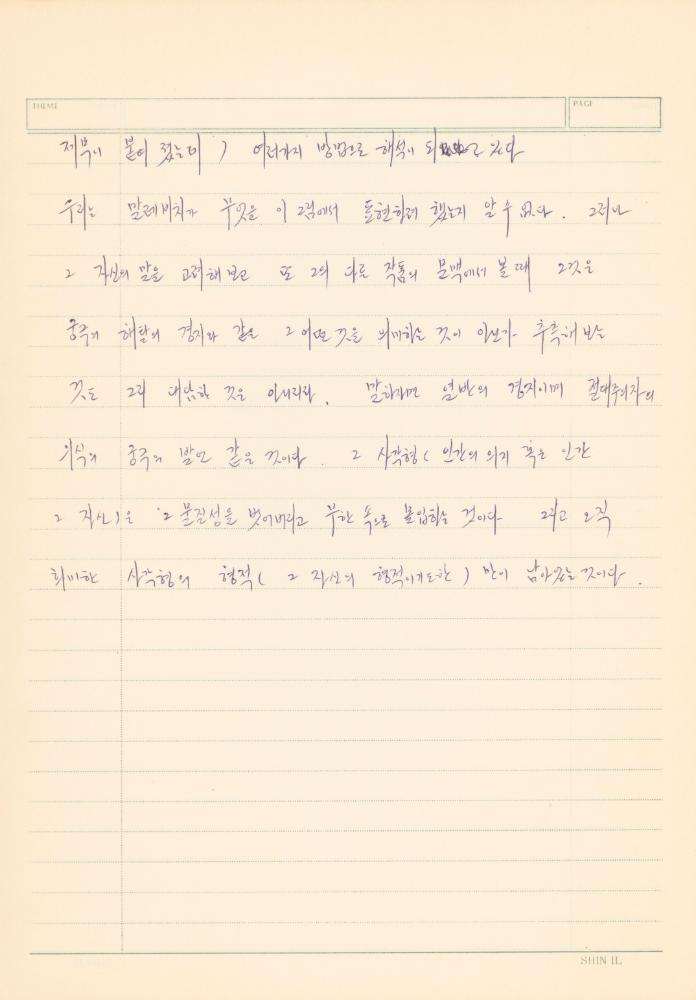 THEME
PAGE
제목이 붙여 졌는데 ) 여러가지 방법으로 해석이 되고 있다
우리는 말레비치가 무엇을 이 그림에서 표현하려 했는지 알 수 없다. 그러나
그 자신의 말을 고려해보고 또 그의 다른 작품의 문맥에서 볼 때 그것은
궁극의 해탈의 경지와 같은 그 어떤 것을 의미하는 것이 아닌가 추측해 보는
것도 그리 대담한 것은 아니리라. 말하자면 열반의 경지이며 절대주의자의
의식의 궁극의 발언 같은 것이다. 그 사각형 ( 인간의 의지 혹은 인간
그 자신 ) 은 그 물질성을 벗어버리고 무한 속으로 몰입하는 것이다 그리고 오직
희미한 사각형의 형적 ( 그 자신의 형적이기도한 ) 만이 남아있는 것이다.
SHIN IL